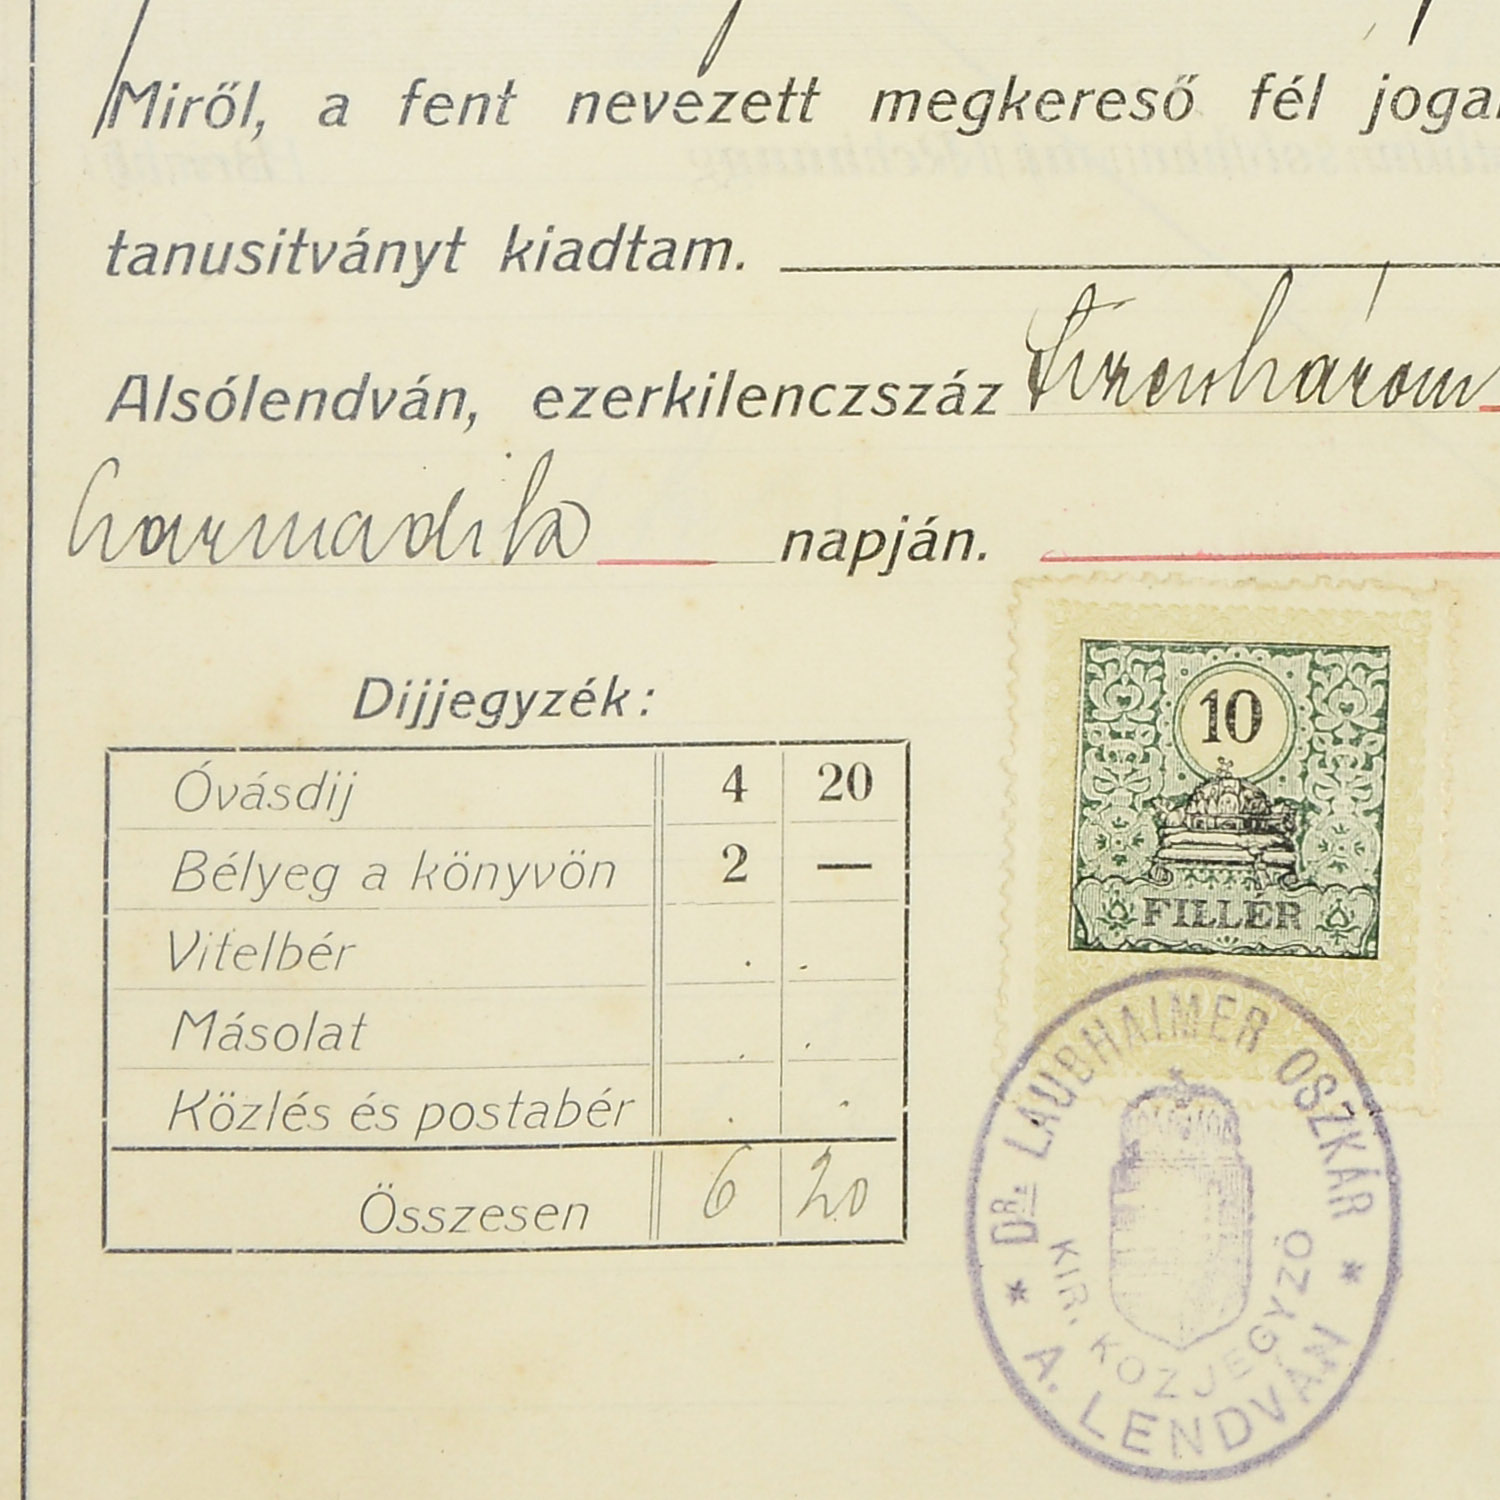 Miről, a fent nevezett megkereső fél joga
tanusitványt kiadtam.
Alsólendván, ezerkilenczszáz tizenhárom
harmadika napján.
Dijjegyzék:
Óvásdij 4 20
Bélyeg a könyvön 2 —
Vitelbér . .
Másolat . .
Közlés és postabér . .
Összesen 6 20
10
FILLÉR
DR. LAUBHAIMER OSZKÁR
KIR. KÖZJEGYZŐ
* A. LENDVÁN *